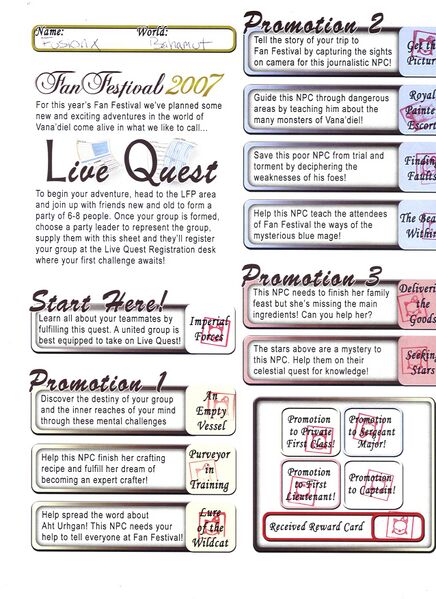 Name: World:
Bahamut
Fan Festival 2007
For this year's Fan Festival we've planned some
new and exciting adventures in the world of
Vana'diel come alive in what we like to call...
Live Quest
To begin your adventure, head to the LFP area
and join up with friends new and old to form a
party of 6-8 people. Once your group is formed,
choose a party leader to represent the group,
supply them with this sheet and they'll register
your group at the Live Quest Registration desk
where your first challenge awaits!
Start Here!
Learn all about your teammates by
fulfilling this quest. A united group is
best equipped to take on Live Quest!
Imperial
Forces
Promotion 1
Discover the destiny of your group
and the inner reaches of your mind
through these mental challenges
An
Empty
Vessel
Help this NPC finish her crafting
recipe and fulfill her dream of
becoming an expert crafter!
Purveyor
in
Training
Help spread the word about
Aht Urhgan! This NPC needs your
help to tell everyone at Fan Festival!
Lure
of the
Wildcat
Promotion 2
Tell the story of your trip to
Fan Festival by capturing the sights
on camera for this journalistic NPC!
Get th
Pictur
Guide this NPC through dangerous
areas by teaching him about the
many monsters of Vana'diel!
Royal
Painte
Escort
Save this poor NPC from trial and
torment by deciphering the
weaknesses of his foes!
Finding
Faults
Help this NPC teach the attendees
of Fan Festival the ways of the
mysterious blue mage!
The Bea
Within
Promotion 3
This NPC needs to finish her family
feast but she's missing the main
ingredients! Can you help her?
Deliveri
the
Goods
The stars above are a mystery to
this NPC. Help them on their
celestial quest for knowledge!
Seeking
Stars
Promotion
to Private
First Class!
Promotion
to Sergeant
Major!
Promotion
to First
Lieutenant!
Promotion
to Captain!
Received Reward Card